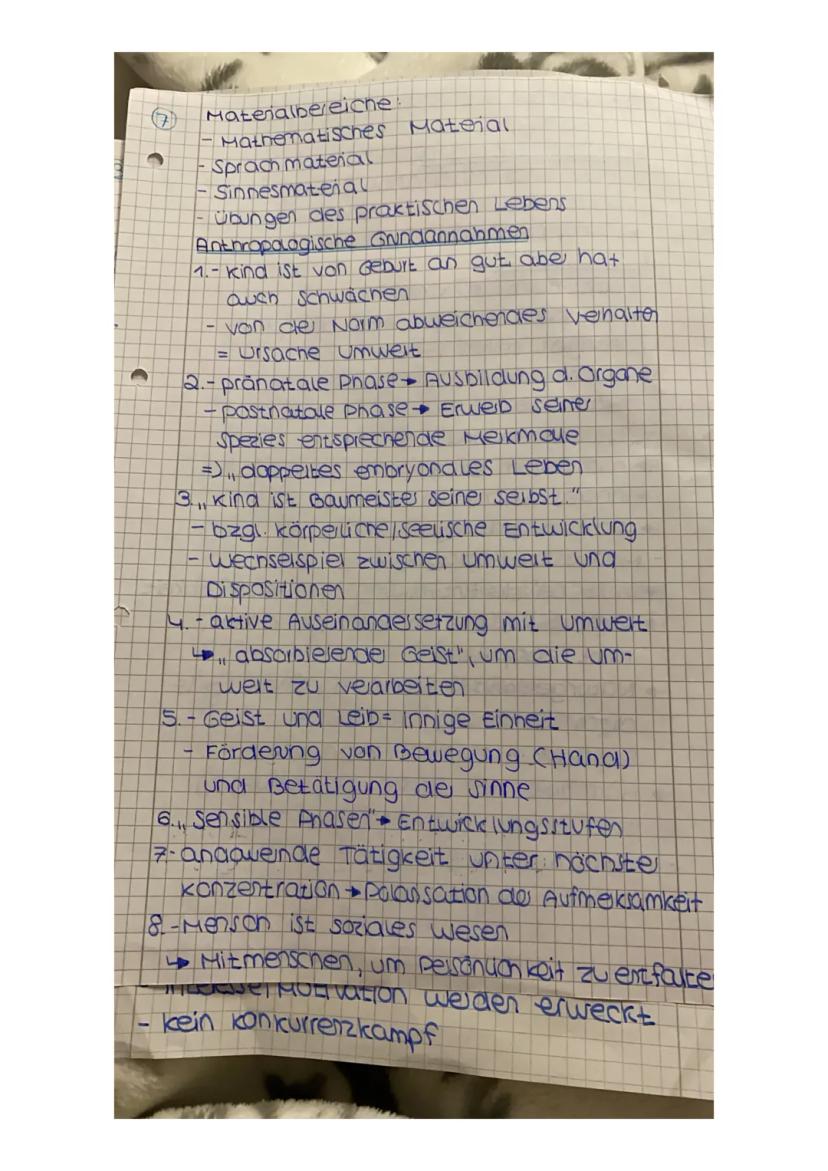 7
Materialbereiche:
- Mathematisches Material
- Sprachmaterial
- Sinnesmaterial
- Übungen des praktischen Lebens
Anthropologische Grundannahmen
1.- Kind ist von Geburt an gut, aber hat
auch Schwächen
- von der Norm abweichendes Verhalten
= Ursache Umwelt
2.- pränatale Phase → Ausbildung d. Organe
- postnatale Phase → Erwerb seiner
Spezies entsprechende Merkmale
=> „doppeltes embryonales Leben
3. „Kind ist Baumeister seiner selbst."
- bzgl. körperliche/seelische Entwicklung
- Wechselspiel zwischen Umwelt und
Dispositionen
4.- aktive Auseinandersetzung mit Umwelt
↳ „absorbierender Geist", um die Um-
welt zu verarbeiten
5.- Geist und Leib = innige Einheit
- Förderung von Bewegung (Hand)
und Betätigung der Sinne
6. „Sensible Phasen" → Entwicklungsstufen
7.- andauernde Tätigkeit unter höchster
Konzentration → Polarisation der Aufmerksamkeit
8.- Mensch ist soziales Wesen
↳ Mitmenschen, um Persönlichkeit zu entfalte
Motivation werden erweckt
- kein Konkurrenzkampf